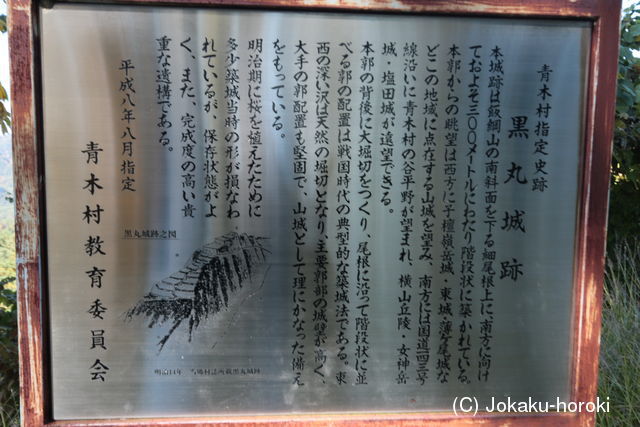 青木村指定史跡
黒丸城跡
本城跡は飯綱山の南斜面を下る細尾根上に、南方に向け
ておよそ三〇〇メートルにわたり階段状に築かれている。
本郭からの眺望は西方に子檀嶺岳城・東城・薄ヶ尾城な
どこの地域に点在する山城を望み、南方には国道一四三号
線沿いに青木村の谷平野が望まれ、横山丘陵・女神岳
城・塩田城が遠望できる。
本郭の背後に大堀切をつくり、尾根に沿って階段状に並
べる郭の配置は戦国時代の典型的な築城法である。東
西の深い沢は天然の堀切となり、主要郭部の城壁が高く、
大手の郭配置も堅固で、山城として理にかなった備え
をもっている。
明治期に桜を植えたために
多少築城当時の形が損なわ
れているが、保存状態がよ
く、また、完成度の高い貴
重な遺構である。
平成八年八月指定
青木村教育委員会
黒丸城跡之図
明治14年 当郷村誌所載黒丸城跡
(C) Jokaku-horoki